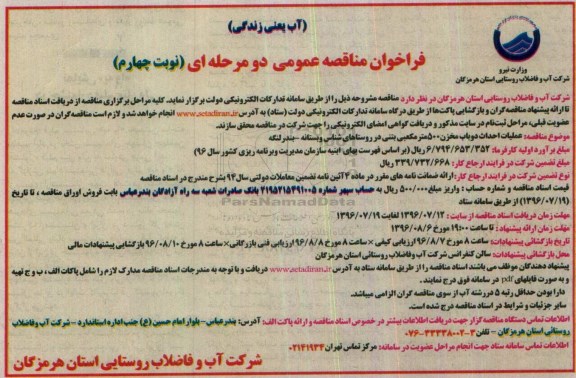 (آب یعنی زندگی)
فراخوان مناقصه عمومی دو مرحله ای (نوبت چهارم)
وزارت نیرو
شرکت آب و فاضلاب روستایی استان هرمزگان
شرکت آب و فاضلاب روستایی استان هرمزگان در نظر دارد مناقصه مشروحه ذیل را از طریق سامانه تدارکات الکترونیکی دولت برگزار نماید. کلیه مراحل برگزاری مناقصه از دریافت اسناد مناقصه
تا ارائه پیشنهاد مناقصه گران و بازگشایی پاکت‌ها از طریق درگاه سامانه تدارکات الکترونیکی دولت (ستاد) به آدرس www.setadiran.ir انجام خواهد شد و لازم است مناقصه گران در صورت عدم
عضویت قبلی، مراحل ثبت‌نام در سایت مذکور و دریافت گواهی امضای الکترونیکی را جهت شرکت در مناقصه محقق سازند.
موضوع مناقصه: عملیات احداث دو باب مخزن ۵۰۰ مترمکعبی بتنی در روستاهای شناس و بستانه - بندر لنگه
مبلغ برآورد اولیه کارفرما: ۶/۷۹۴/۶۵۳/۳۵۲ ریال (بر اساس فهرست بهای ابنیه سازمان مدیریت و برنامه ریزی کشور سال ۹۶)
مبلغ تضمین شرکت در فرایند ارجاع کار: ۳۳۹/۷۳۲/۶۶۸ ریال
نوع تضمین شرکت در فرایند ارجاع کار: ارائه ضمانت نامه های مقرر در ماده ۴ آئین نامه تضمین معاملات دولتی سال ۹۴ بشرح مندرج در اسناد مناقصه
قیمت اسناد مناقصه و شماره حساب : واریز مبلغ ۵۰۰/۰۰۰ ریال به حساب سپهر شماره ۲۱۹۵۲۱۵۴۹۱۰۰۵ بانک صادرات شعبه سه راه آزادگان بندرعباس بابت فروش اوراق مناقصه ، تا تاریخ
(۱۳۹۶/۰۷/۱۹) از طریق سامانه ستاد
مهلت زمان دریافت اسناد مناقصه از سایت : ۱۳۹۶/۰۷/۱۲ لغایت ۱۳۹۶/۰۷/۱۹
مهلت زمان ارائه پیشنهاد : تا ساعت ۱۹:۰۰ مورخ ۱۳۹۶/۰۸/۶
تاریخ بازگشائی پیشنهادات: ساعت ۸ مورخ ۹۶/۸/۷ ارزیابی کیفی × ساعت ۸ مورخ ۹۶/۸/۸ ارزیابی فنی بازرگانی × ساعت ۸ مورخ ۹۶/۰۸/۱۰ بازگشایی پیشنهادات مالی
محل بازگشائی پیشنهادات: سالن کنفرانس شرکت آب و فاضلاب روستائی استان هرمزگان
پیشنهاد دهندگان موظف می باشند اسناد مناقصه را از طریق سامانه ستاد به آدرس www.setadiran.ir دریافت و با توجه به مندرجات اسناد مناقصه مدارک لازم را شامل پاکات الف ، ب و ج تهیه
و به صورت فایلهای pdf در سامانه فوق درج نمایند.
دارا بودن حداقل رتبه ۵ در رشته آب از سوی مناقصه گران الزامی میباشد.
سایر جزئیات و شرایط در اسناد مناقصه درج شده است.
اطلاعات تماس دستگاه مناقصه گزار جهت دریافت اطلاعات بیشتر در خصوص اسناد مناقصه و ارائه پاکت الف: آدرس: بندرعباس - بلوار امام حسین (ع) جنب اداره استاندارد - شرکت آب و فاضلاب
روستائی استان هرمزگان - تلفن ۳-۳۳۳۳۸۰۰۲-۰۷۶
اطلاعات تماس سامانه ستاد جهت انجام مراحل عضویت در سامانه: مرکز تماس تهران ۰۲۱۴۱۹۳۴
شرکت آب و فاضلاب روستایی استان هرمزگان